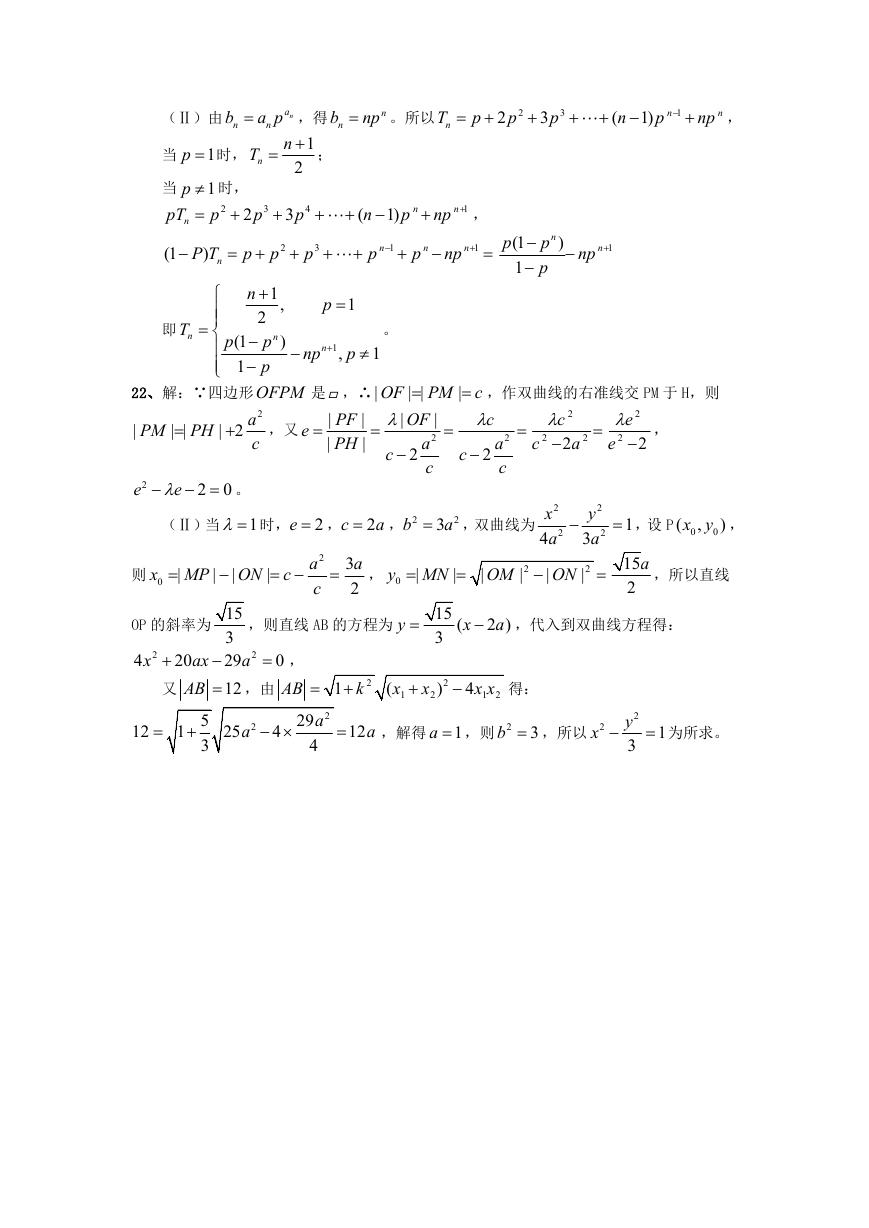 (Ⅱ)由 b_n = a_n p^{a_n}，得 b_n = np^n 。所以 T_n = p + 2p^2 + 3p^3 + ⋯ + (n − 1)p^{n−1} + np^n ，
当 p = 1 时， T_n = \frac{n+1}{2} ；
当 p ≠ 1 时，
pT_n = p^2 + 2p^3 + 3p^4 + ⋯ + (n − 1)p^n + np^{n+1} ，
(1 − P)T_n = p + p^2 + p^3 + ⋯ + p^{n−1} + p^n − np^{n+1} = \frac{p(1 − p^n)}{1 − p} − np^{n+1}
即 T_n = \begin{cases} \frac{n+1}{2}, & p = 1 \\ \frac{p(1 − p^n)}{1 − p} − np^{n+1}, & p ≠ 1 \end{cases} 。
22、解：∵四边形 OFPM 是▱，∴ | OF |=| PM |= c ，作双曲线的右准线交 PM 于 H，则
| PM |=| PH | +2\frac{a^2}{c} ，又 e = \frac{| PF |}{| PH |} = \frac{λ | OF |}{c − 2\frac{a^2}{c}} = \frac{λc}{c − 2\frac{a^2}{c}} = \frac{λc^2}{c^2 − 2a^2} = \frac{λe^2}{e^2 − 2} ，
e^2 − λe − 2 = 0 。
(Ⅱ)当 λ = 1 时， e = 2 ， c = 2a ， b^2 = 3a^2 ，双曲线为 \frac{x^2}{4a^2} − \frac{y^2}{3a^2} = 1 ，设 P (x_0, y_0) ，
则 x_0 =| MP | − | ON |= c − \frac{a^2}{c} = \frac{3a}{2} ， y_0 =| MN |= \sqrt{| OM |^2 − | ON |^2} = \frac{\sqrt{15}a}{2} ，所以直线
OP 的斜率为 \frac{\sqrt{15}}{3} ，则直线 AB 的方程为 y = \frac{\sqrt{15}}{3}(x − 2a) ，代入到双曲线方程得：
4x^2 + 20ax − 29a^2 = 0 ，
又 |AB| = 12 ，由 |AB| = \sqrt{1 + k^2} \sqrt{(x_1 + x_2)^2 − 4x_1x_2} 得：
12 = \sqrt{1 + \frac{5}{3}} \sqrt{25a^2 − 4 × \frac{29a^2}{4}} = 12a ，解得 a = 1 ，则 b^2 = 3 ，所以 x^2 − \frac{y^2}{3} = 1 为所求。